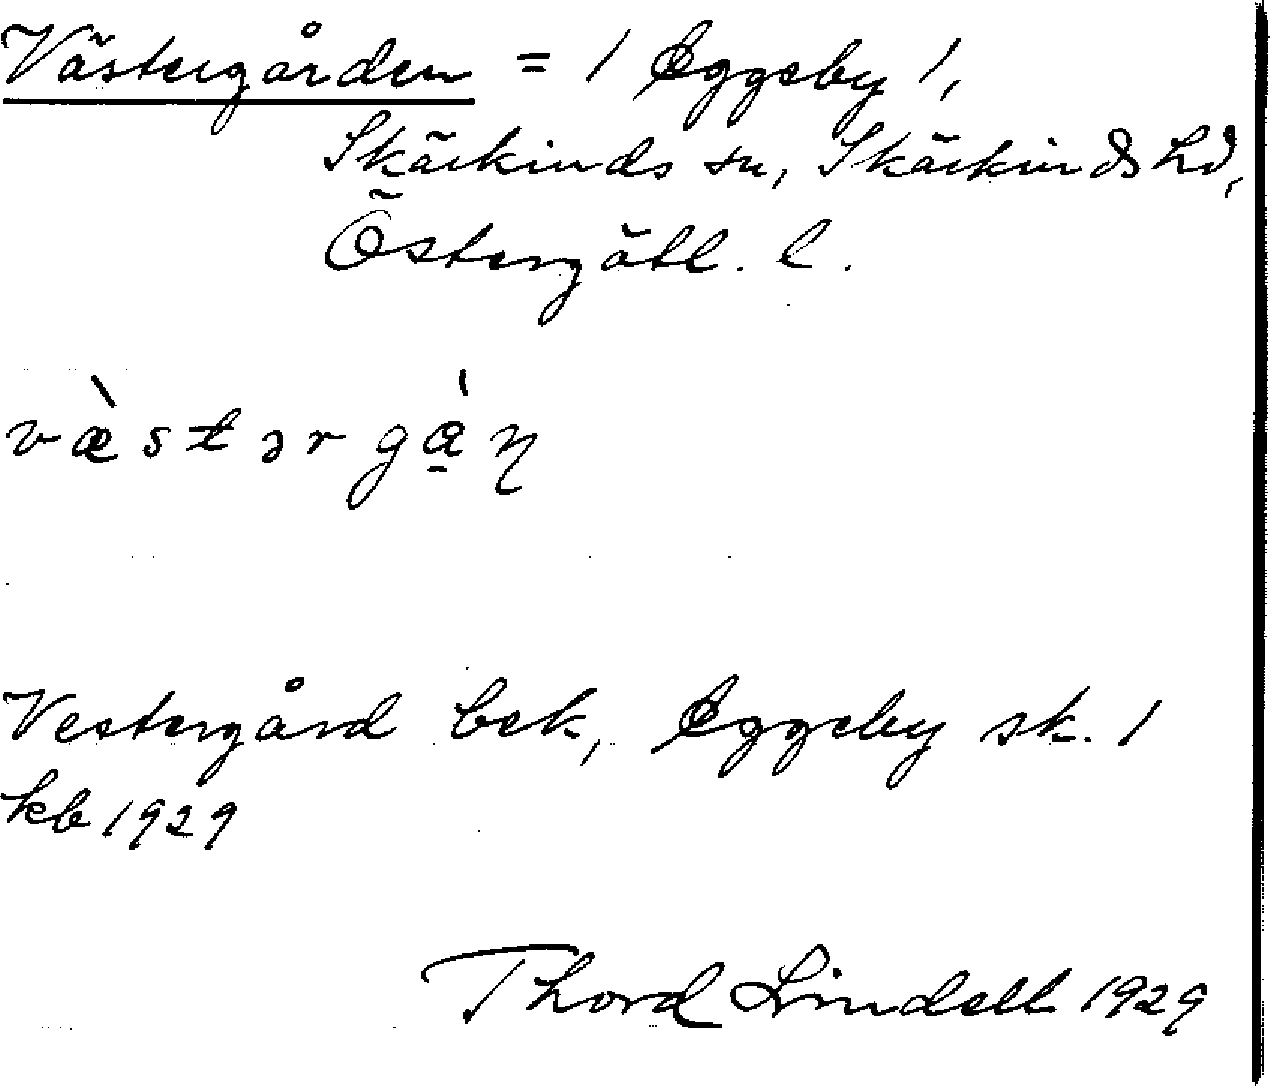 Västergården = 1 Eggeby 1,
Skärkinds sn, Skärkinds hd,
Östergötl. l.
væ̀stərgà̱ɳ
Vestergård bek, Eggeby sk. 1
kb 1929
Thord Lindell 1929